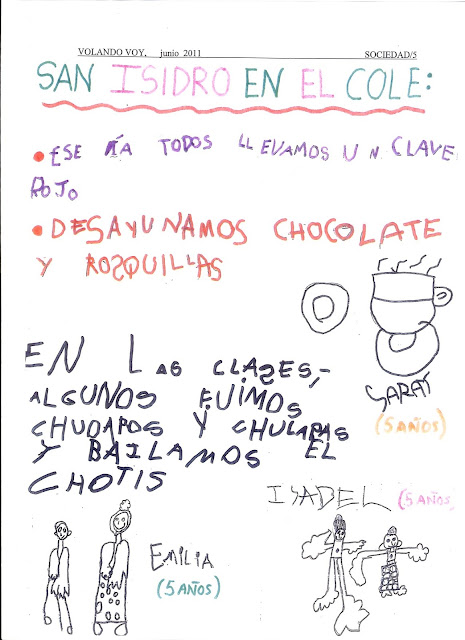 VOLANDO VOY, junio 2011 SOCIEDAD/5
SAN ISIDRO EN EL COLE:
• ESE DÍA TODOS LLEVAMOS UN CLAVE
ROJO
• DESAYUNAMOS CHOCOLATE
Y ROSQUILLAS
EN LAS CLASES,
ALGUNOS FUIMOS
CHUOAPOS Y CHULAPAS
Y BAILAMOS EL
CHOTIS
SARAY
(5 AÑOS)
ISABEL (5 AÑOS,
EMILIA
(5 AÑOS)